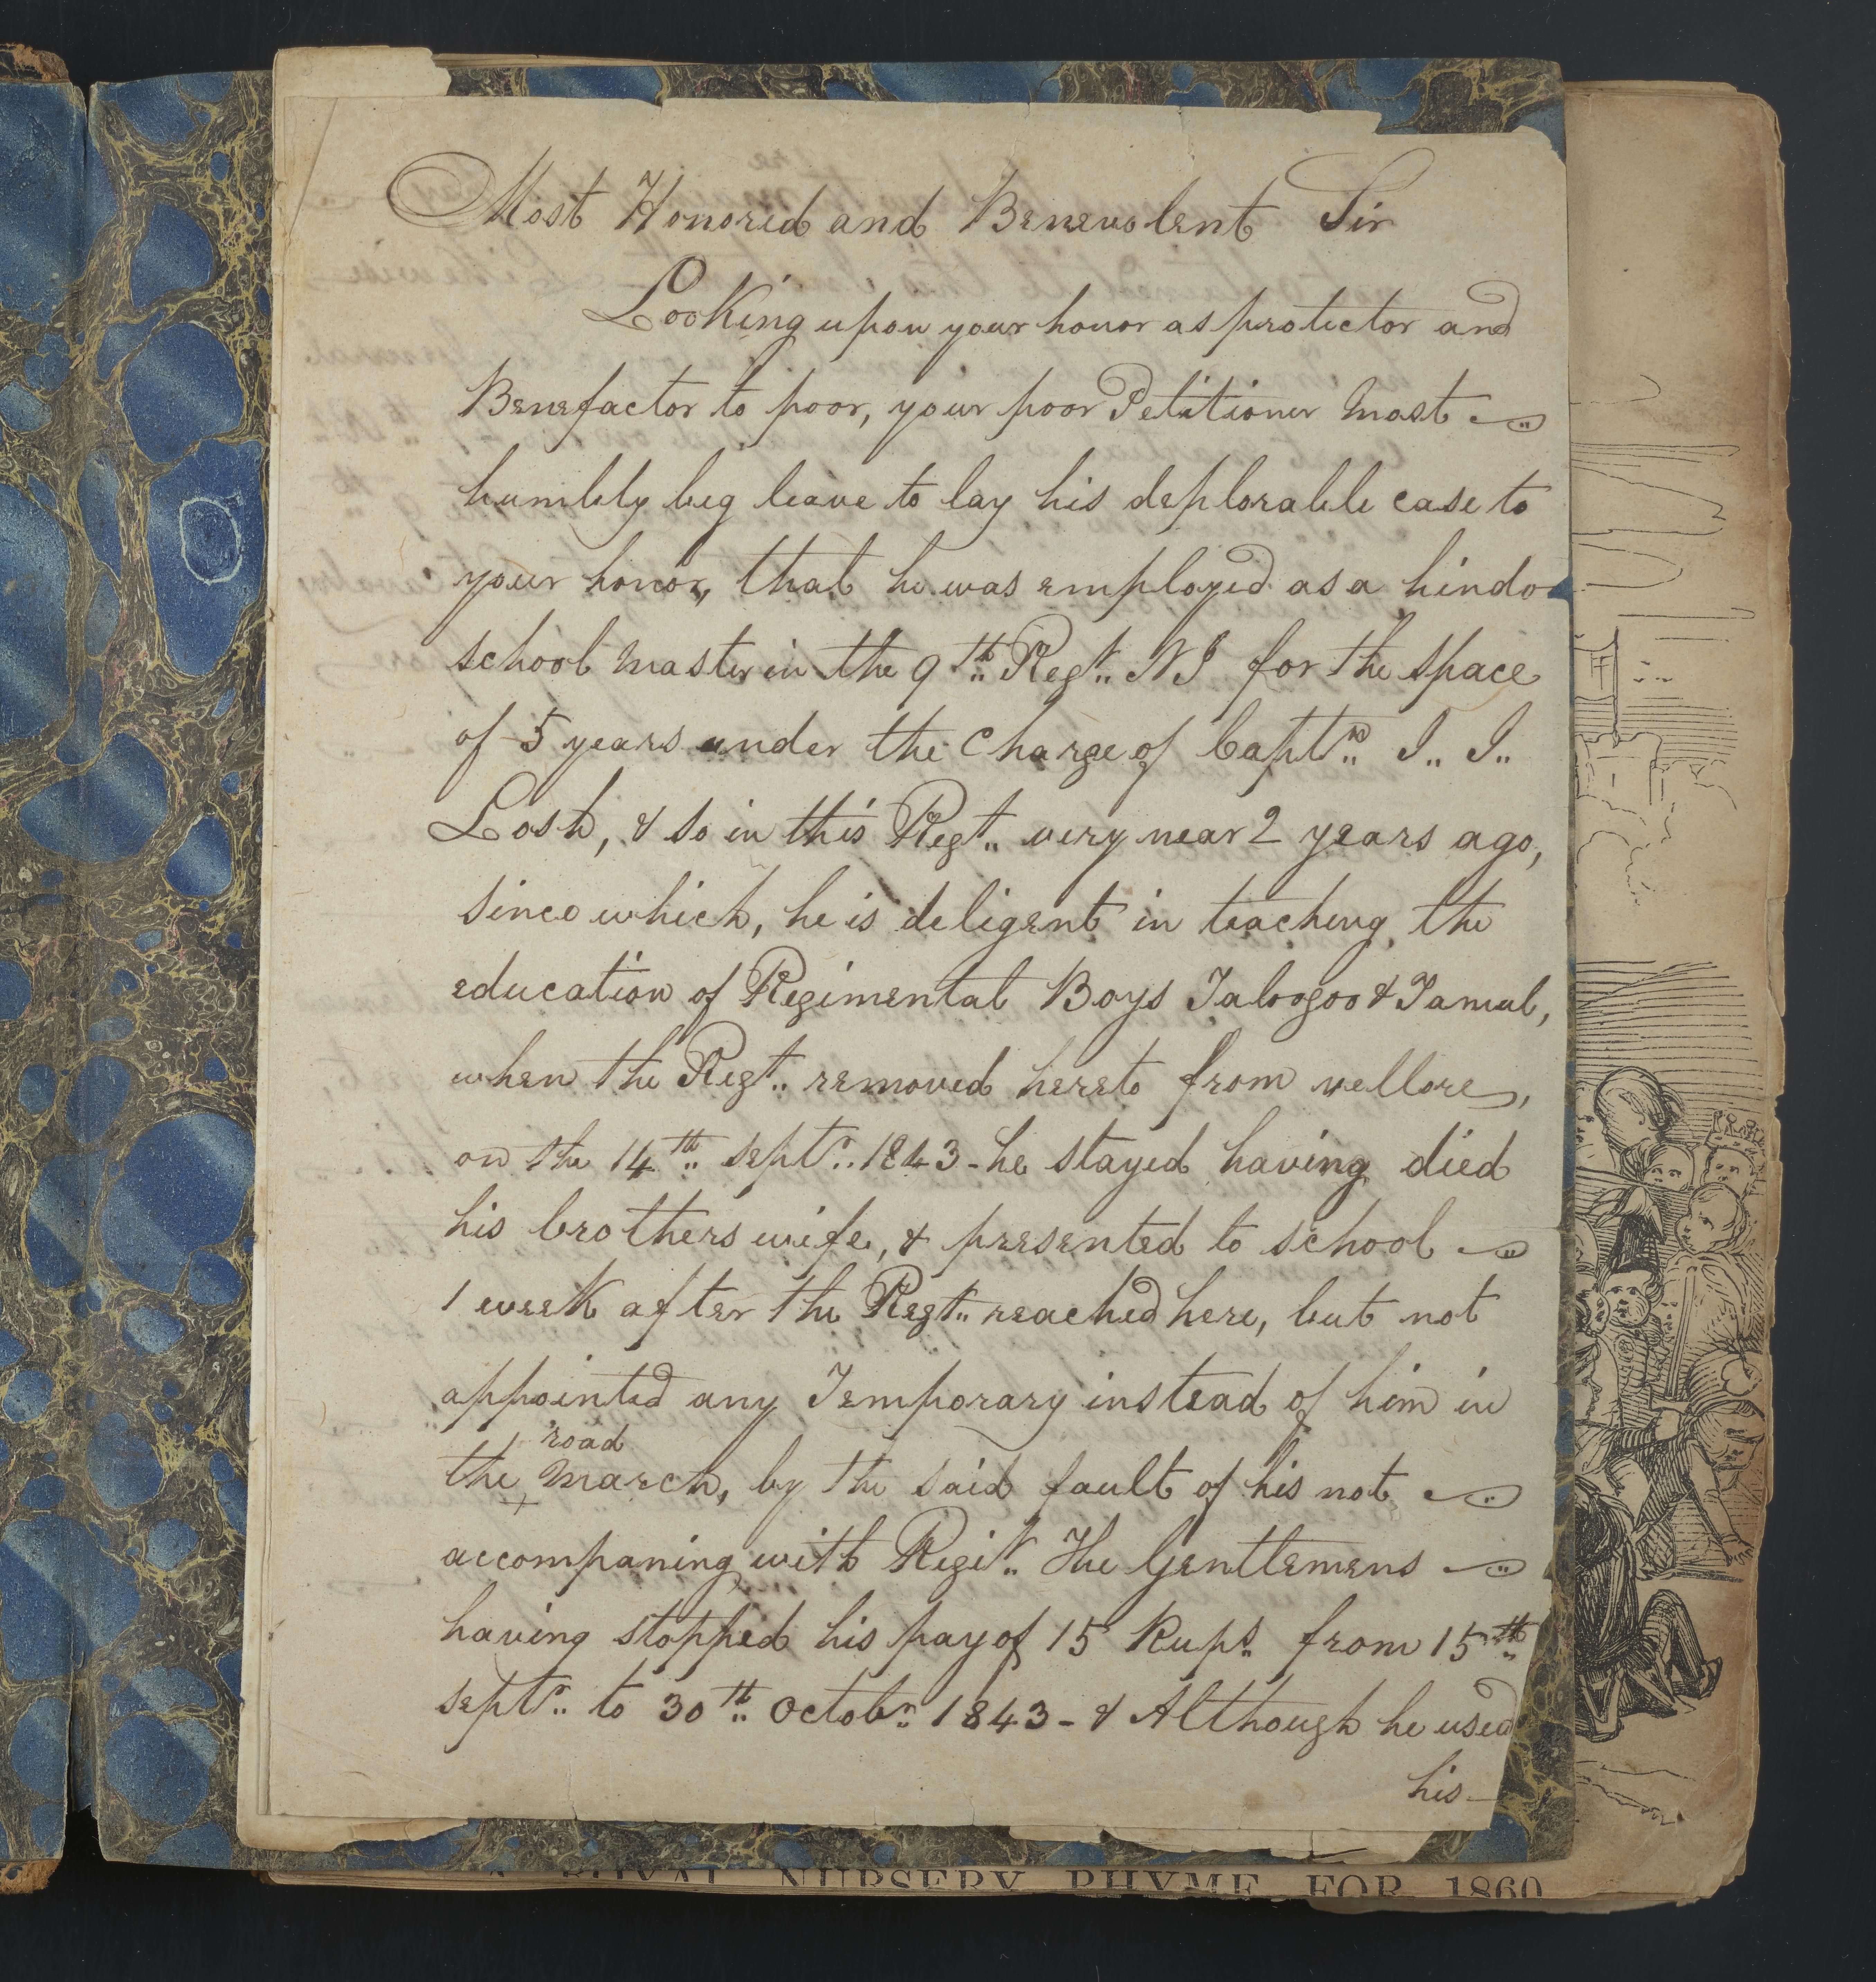 Most Honored and Benevolent Sir
Looking upon your honor as protector and
Benefactor to poor, your poor Petitioner most
humbly beg leave to lay his deplorable case to
your honor, that he was employed as a hindo
school master in the 9th Regt NI for the space
of 5 years under the Charge of Captn I.. I..
Losh, & so in this Regt.. very near 2 years ago,
since which, he is deligent in teaching the
education of Regimental Boys Taloogoo & Tamul,
when the Regt.. removed hereto from vellore,
on the 14th Septr.. 1843 - he stayed having died
his brothers wife, & presented to school
1 week after the Regt.. reached here, but not
appointed any Temporary instead of him in
road
the march, by the said fault of his not
accompaning with Regit.. The Gentlemens
having stopped his pay of 15 Rups from 15th
Septr.. to 30th Octobr 1843 - & Although he used
his -
A ROYAL NURSERY RHYME FOR 1860